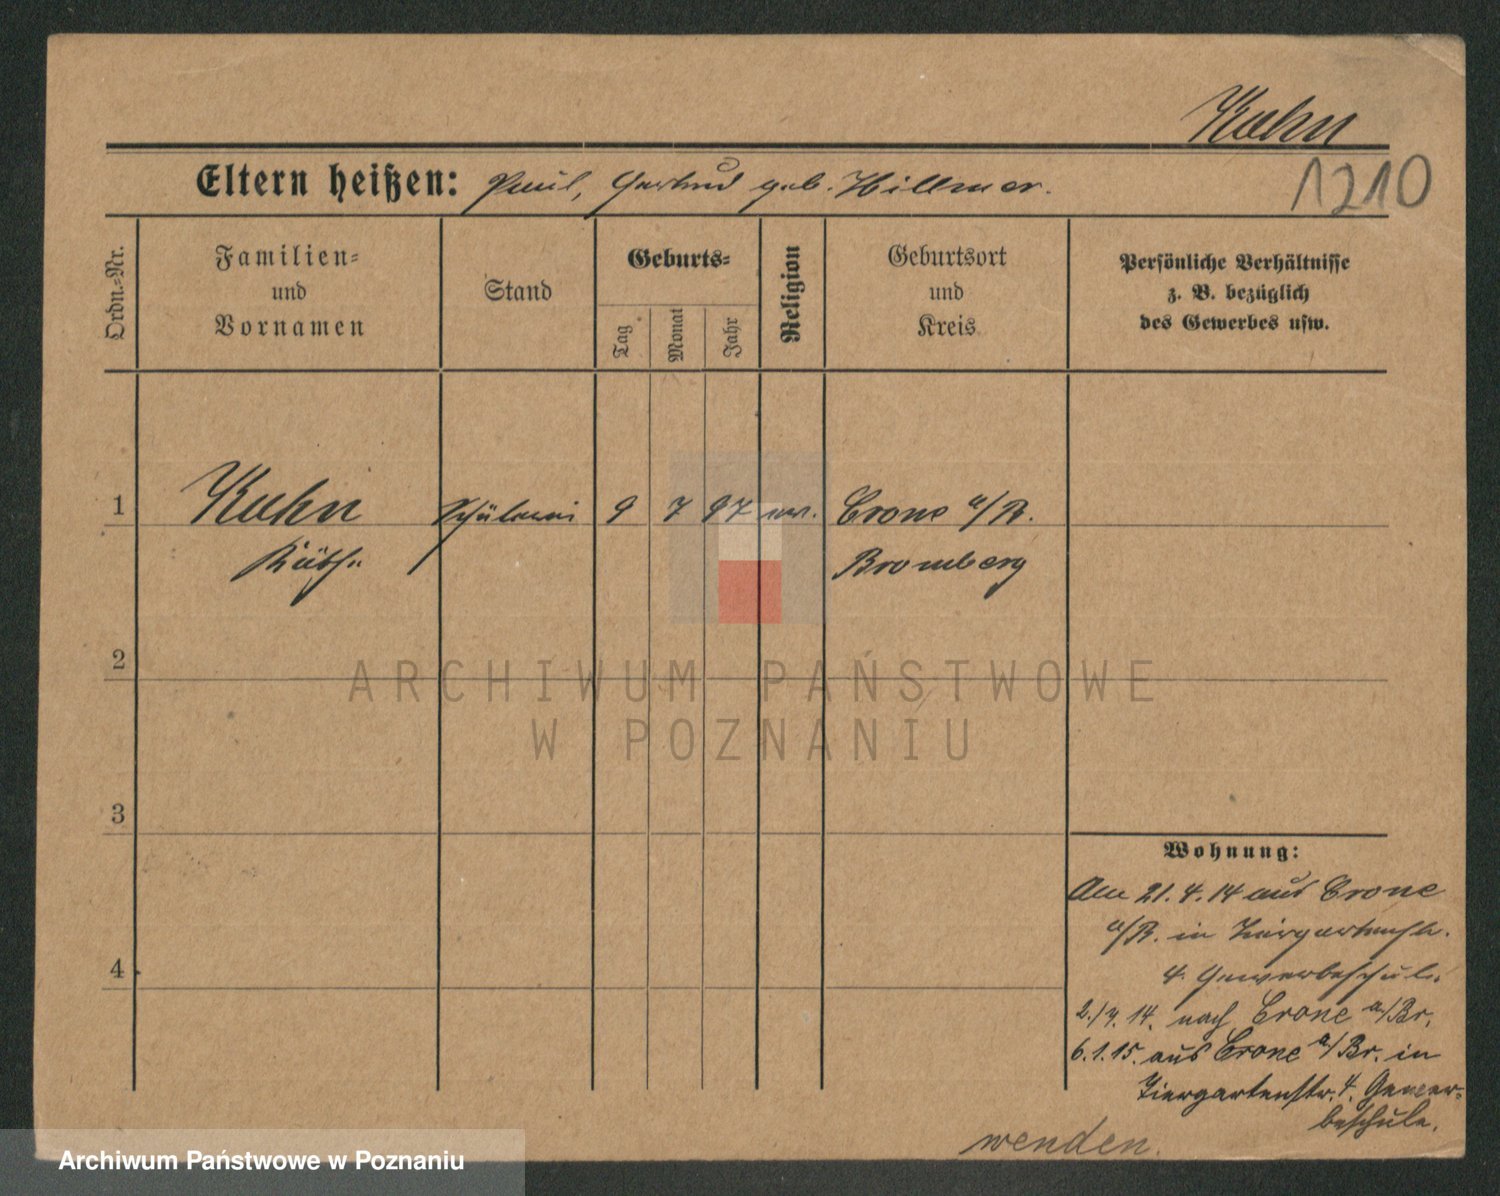 Kuhn
1210
Eltern heißen: Paul, Gertrud geb. Hillmer.
Ordn.-Nr.
Familien-
und
Vornamen
Stand
Geburts-
Tag
Monat
Jahr
Religion
Geburtsort
und
Kreis
Persönliche Verhältnisse
z. B. bezüglich
des Gewerbes usw.
1
Kuhn
Schülerin 9 7 97 ev. Crone a/B.
Käth.
Bromberg
2
3
4
ARCHIWUM PAŃSTWOWE
W POZNANIU
Wohnung:
Am 21.4.14 aus Crone
a/B. in Tiergartenstr.
4. Gewerbeschule.
nach Crone a/Br.
6.1.15. aus Crone a/Br. in
Tiergartenstr. 4. Gewer-
beschule.
wenden.
Archiwum Państwowe w Poznaniu